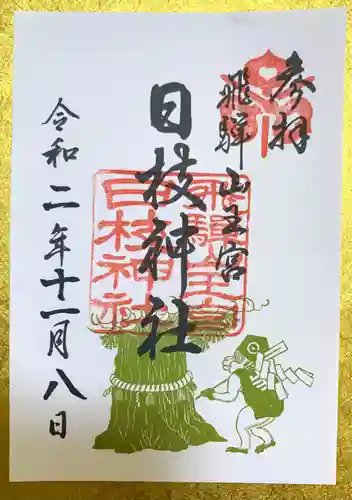 参拝
飛騨山王宮
日枝神社
令和二年十一月八日
飛騨山王宮
日枝神社